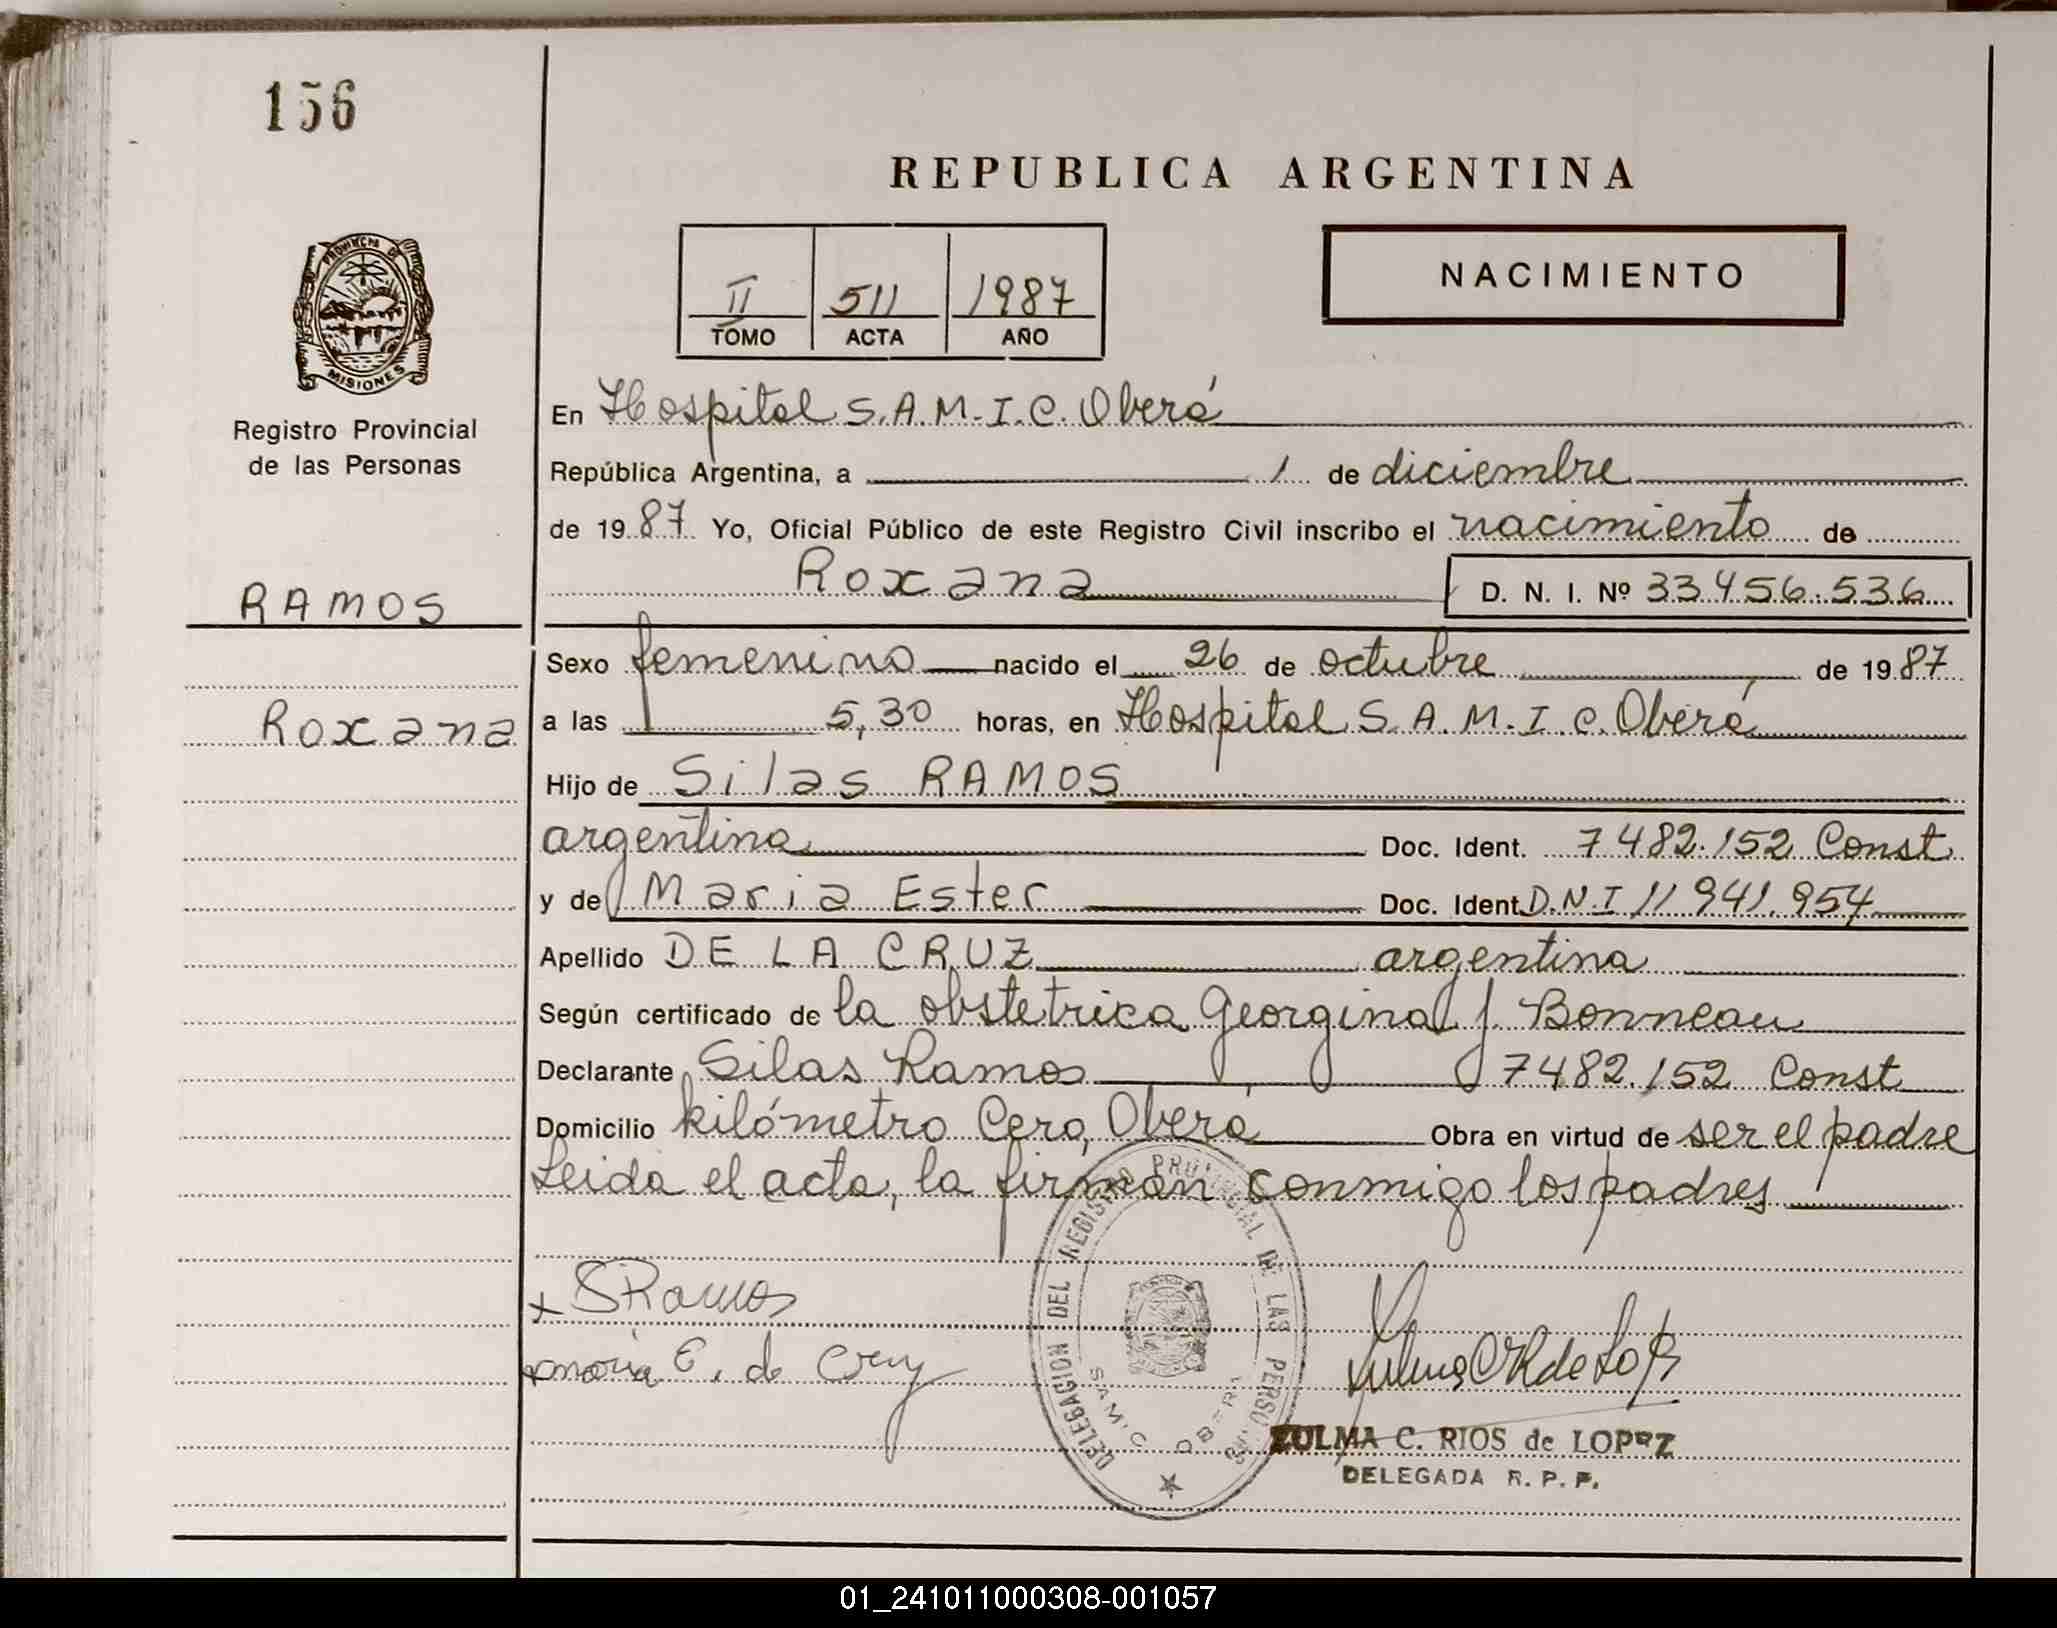 156
REPUBLICA ARGENTINA
II 511 1987
TOMO ACTA AÑO
NACIMIENTO
PROVINCIA DE MISIONES
Registro Provincial
de las Personas
En Hospital S.A.M.I.C. Oberá
República Argentina, a 1 de diciembre
de 1987 Yo, Oficial Público de este Registro Civil inscribo el nacimiento de
Roxana D. N. I. Nº 33.456.536
RAMOS
Sexo femenino nacido el 26 de octubre de 1987
Roxana
a las 5,30 horas, en Hospital S.A.M.I.C. Oberá
Hijo de Silas RAMOS
argentina Doc. Ident. 7482.152 Const
y de Maria Ester Doc. Ident. D.N.I 11 941.954
Apellido DE LA CRUZ argentina
Según certificado de la obstetrica Georgina J. Bonneau
Declarante Silas Ramos 7482.152 Const
Domicilio kilómetro Cero, Oberá Obra en virtud de ser el padre
Leida el acta, la firman conmigo los padres
DELEGACION DEL REGISTRO PROVINCIAL DE LAS PERSONAS
SAMIC OBERA
x SRamos
x Maria E. de Cruz
ZULMA C. RIOS de LOPEZ
DELEGADA R. P. P.
01_241011000308-001057